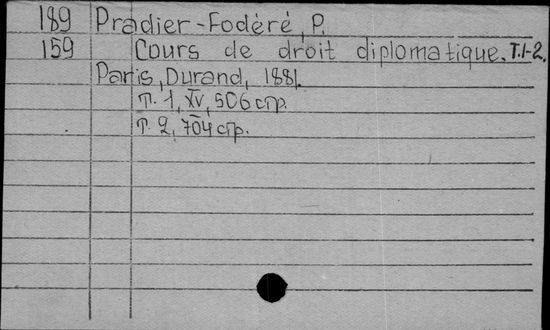 189 Pradier-Fodéré, P.
159 Cours de droit diplomatique. T.1-2.
Paris, Durand, 1881.
т. 1, XV, 506 стр.
т. 2, 704 стр.